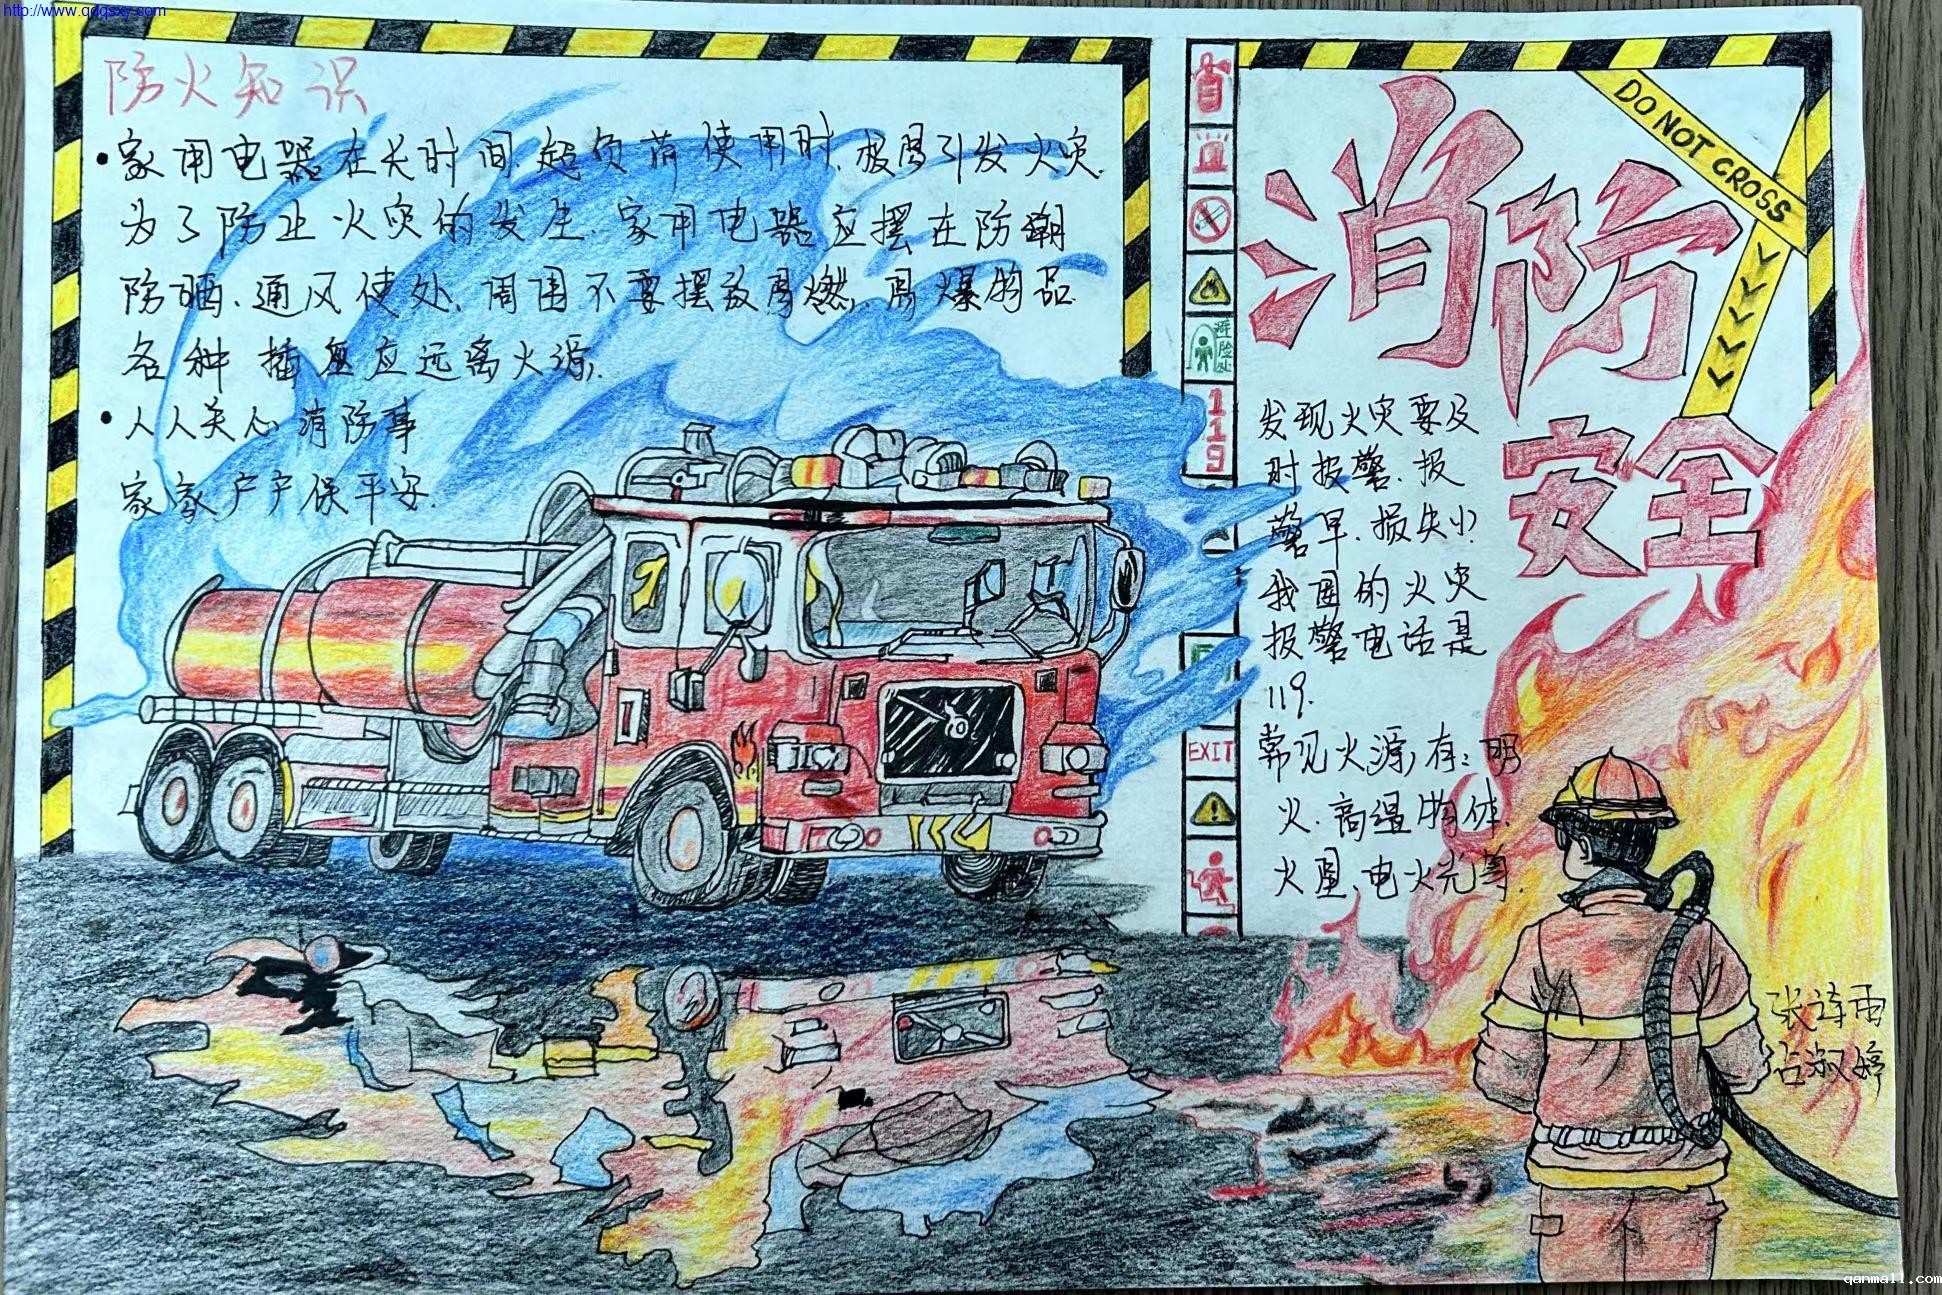 http://www.qdqsxy.com
防火知识
•家用电器在长时间.超负荷使用时.极易引发火灾.
为了防止火灾的发生.家用电器应摆在防潮
防晒.通风使处.周围不要摆放易燃,易爆物品
各种插座应远离火源.
•人人关心消防事
家家户户保平安.
避险处
119
EXIT
DO NOT CROSS
消防
安全
发现火灾要及
时报警.报
警早.损失小.
我国的火灾
报警电话是
119.
常见火源,有:明
火.高温物体.
火星、电火光等.
张诗雨
占淑婷
qanmall.com